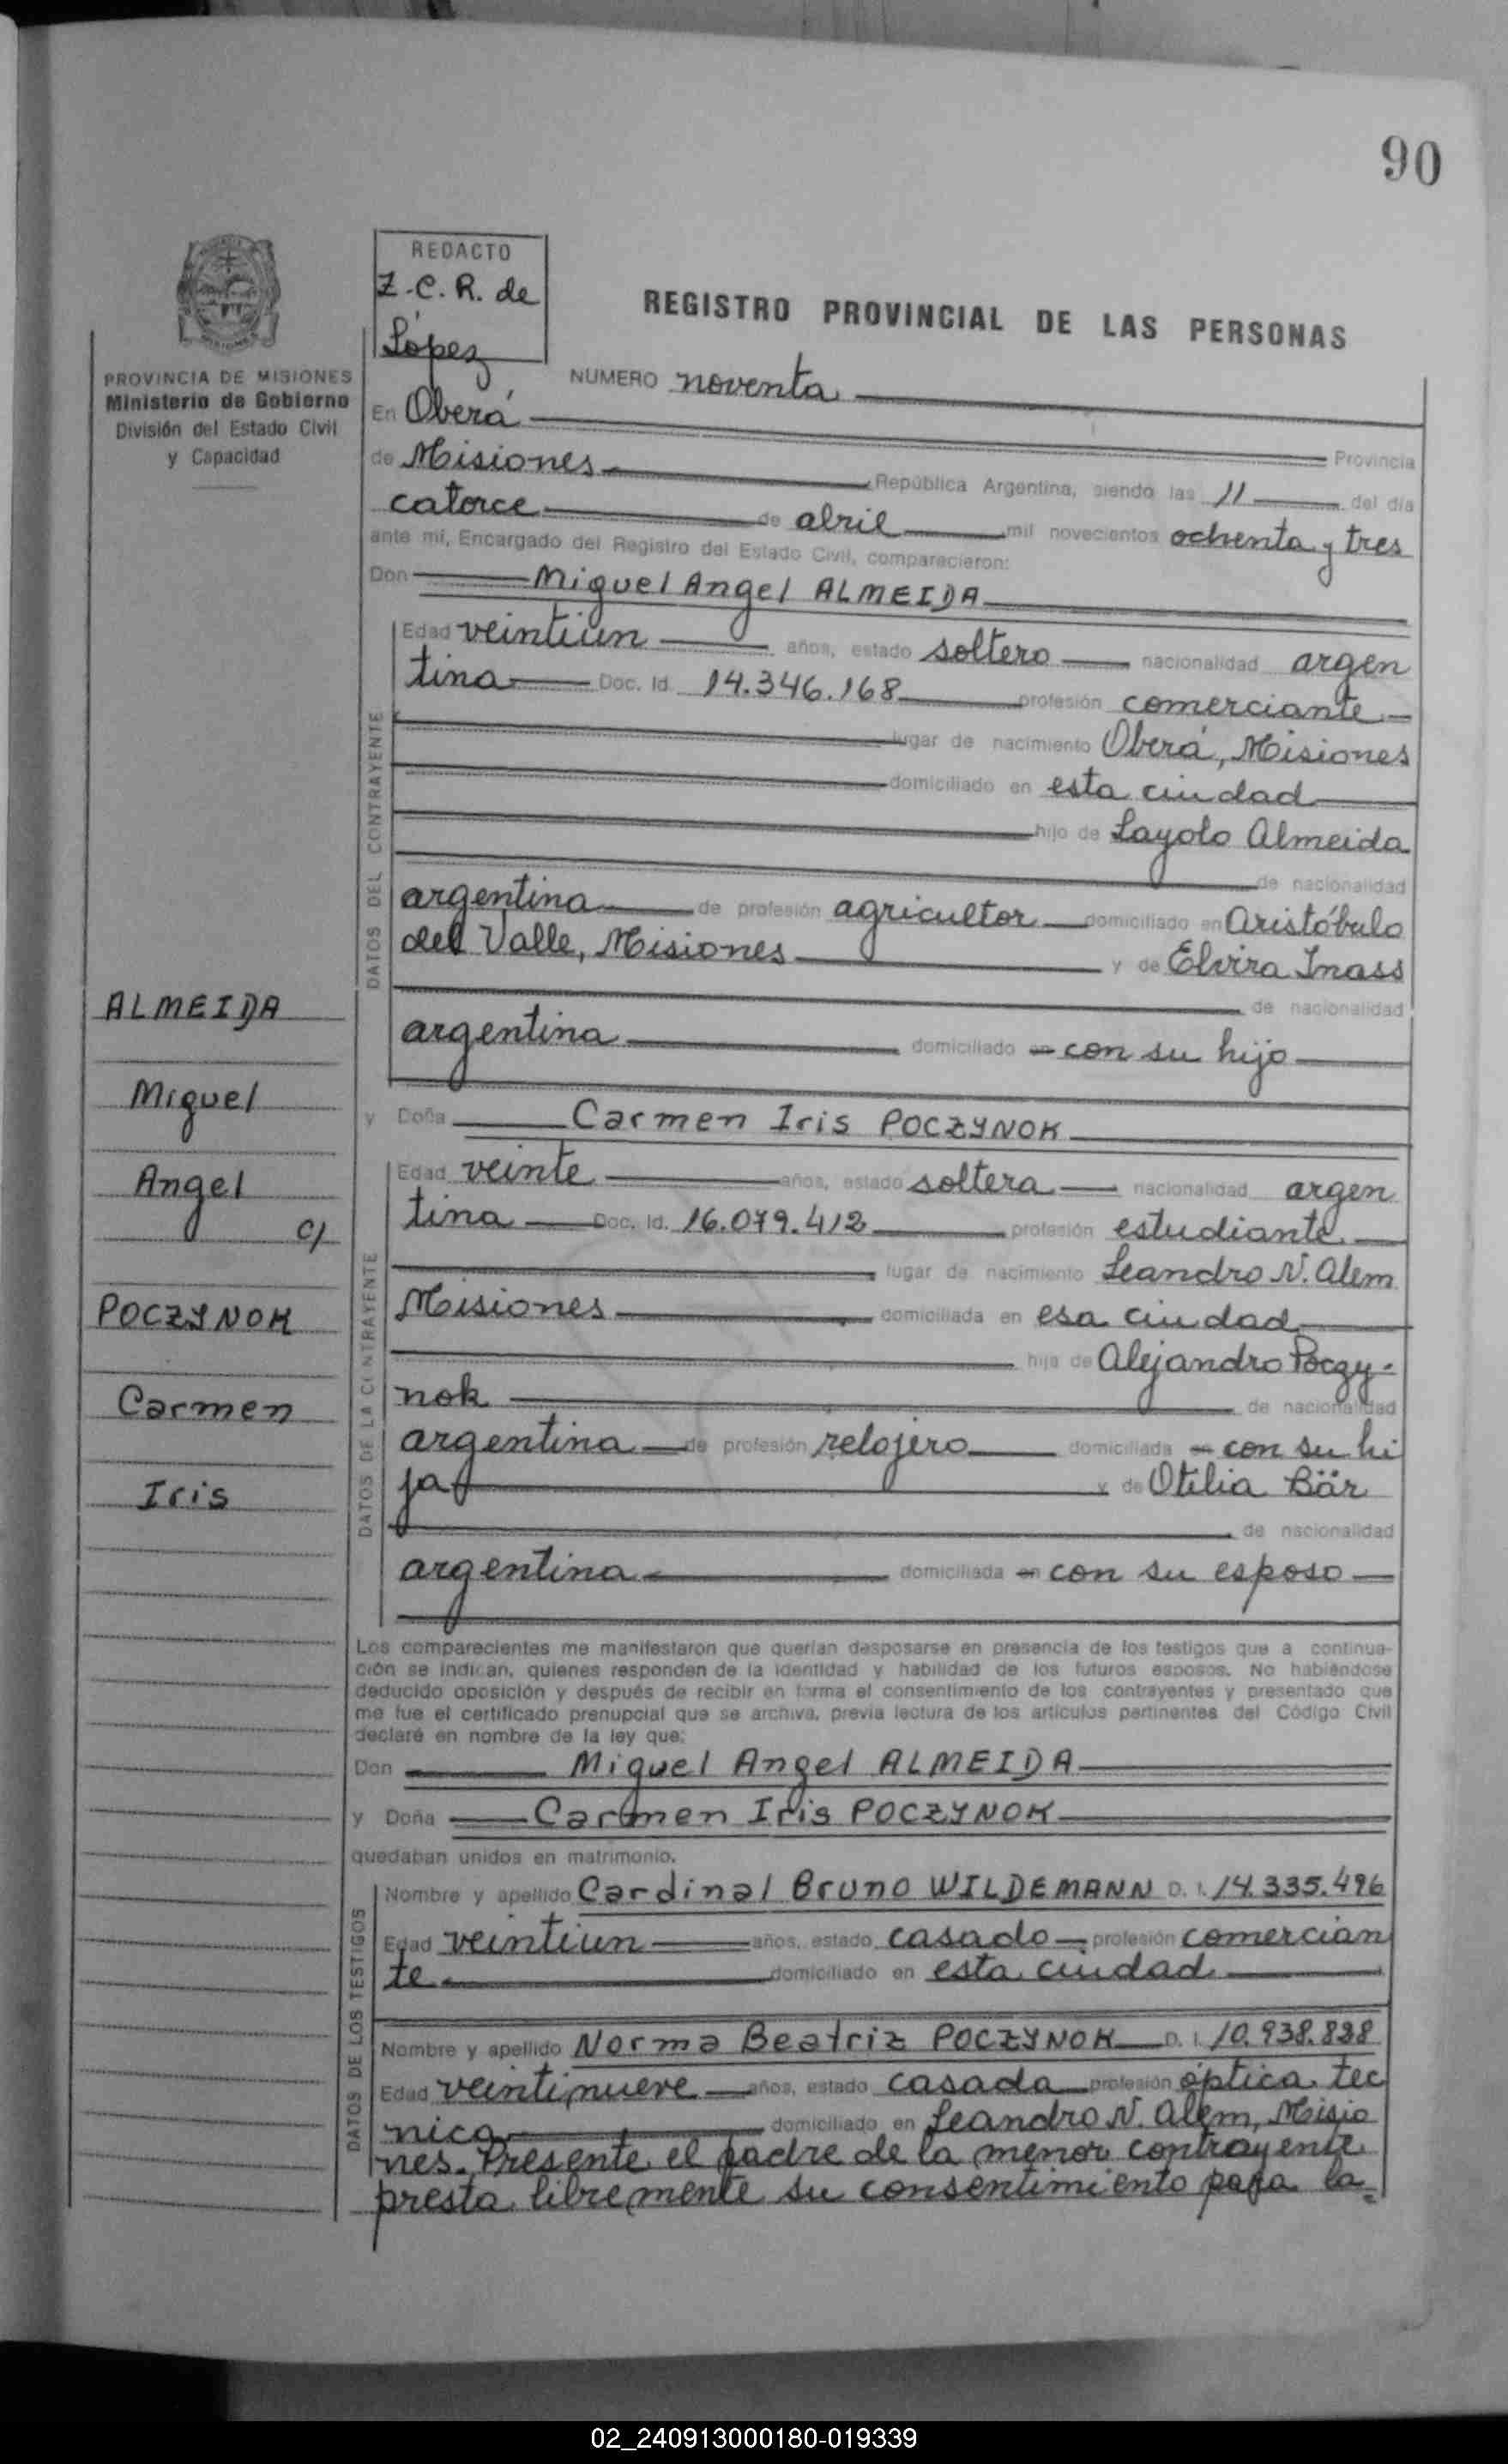 90
REDACTO
Z.C.R. de
López
REGISTRO PROVINCIAL DE LAS PERSONAS
PROVINCIA DE MISIONES
Ministerio de Gobierno
División del Estado Civil
y Capacidad
NUMERO noventa
En Oberá Provincia
de Misiones República Argentina, siendo las 11 del día
catorce de abril mil novecientos ochenta y tres
ante mí, Encargado del Registro del Estado Civil, comparecieron:
Don Miguel Angel ALMEIDA
DATOS DEL CONTRAYENTE
Edad veintiun años, estado soltero nacionalidad argen
tina Doc. Id. 14.346.168 profesión comerciante
lugar de nacimiento Oberá, Misiones
domiciliado en esta ciudad
hijo de Layolo Almeida
de nacionalidad
argentina de profesión agricultor domiciliado en Aristóbulo
del Valle, Misiones y de Elvira Inass
de nacionalidad
argentina domiciliado en con su hijo
ALMEIDA
Miguel
Angel
c/
POCZYNOK
Carmen
Iris
y Doña Carmen Iris POCZYNOK
DATOS DE LA CONTRAYENTE
Edad veinte años, estado soltera nacionalidad argen
tina Doc. Id. 16.079.412 profesión estudiante
lugar de nacimiento Leandro N. Alem
Misiones domiciliada en esa ciudad
hija de Alejandro Poczy-
nok de nacionalidad
argentina de profesión relojero domiciliada en con su hi
ja y de Otilia Bär
de nacionalidad
argentina domiciliada en con su esposo
Los comparecientes me manifestaron que querían desposarse en presencia de los testigos que a continua-
ción se indican, quienes responden de la identidad y habilidad de los futuros esposos. No habiéndose
deducido oposición y después de recibir en forma el consentimiento de los contrayentes y presentado que
me fue el certificado prenupcial que se archiva, previa lectura de los artículos pertinentes del Código Civil
declaré en nombre de la ley que:
Don Miguel Angel ALMEIDA
y Doña Carmen Iris POCZYNOK
quedaban unidos en matrimonio.
DATOS DE LOS TESTIGOS
Nombre y apellido Cardinal Bruno WILDEMANN D. I. 14.335.496
Edad veintiun años, estado casado profesión comercian
te domiciliado en esta ciudad
Nombre y apellido Norma Beatriz POCZYNOK D. I. 10.938.828
Edad veintinueve años, estado casada profesión óptica tec
nica domiciliado en Leandro N. Alem, Misio
nes. Presente el padre de la menor contrayente
presta libremente su consentimiento para la=
02_240913000180-019339